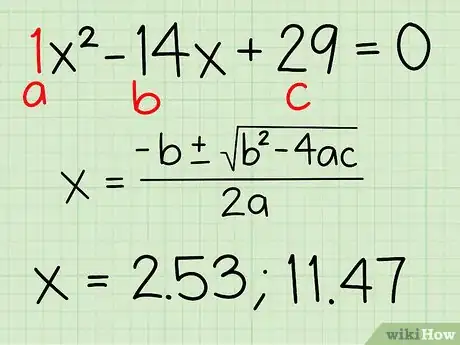 1x² - 14x + 29 = 0
a b c
x = (-b ± √(b² - 4ac)) / 2a
x = 2.53; 11.47
wikiHow